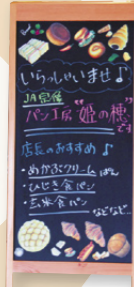 いらっしゃいませ♪
JA宗像
パン工房"姫の穂"
です
店長のおすすめ♪
・めかぶクリームぱん
・ひじき食パン
・玄米食パン
などなど…